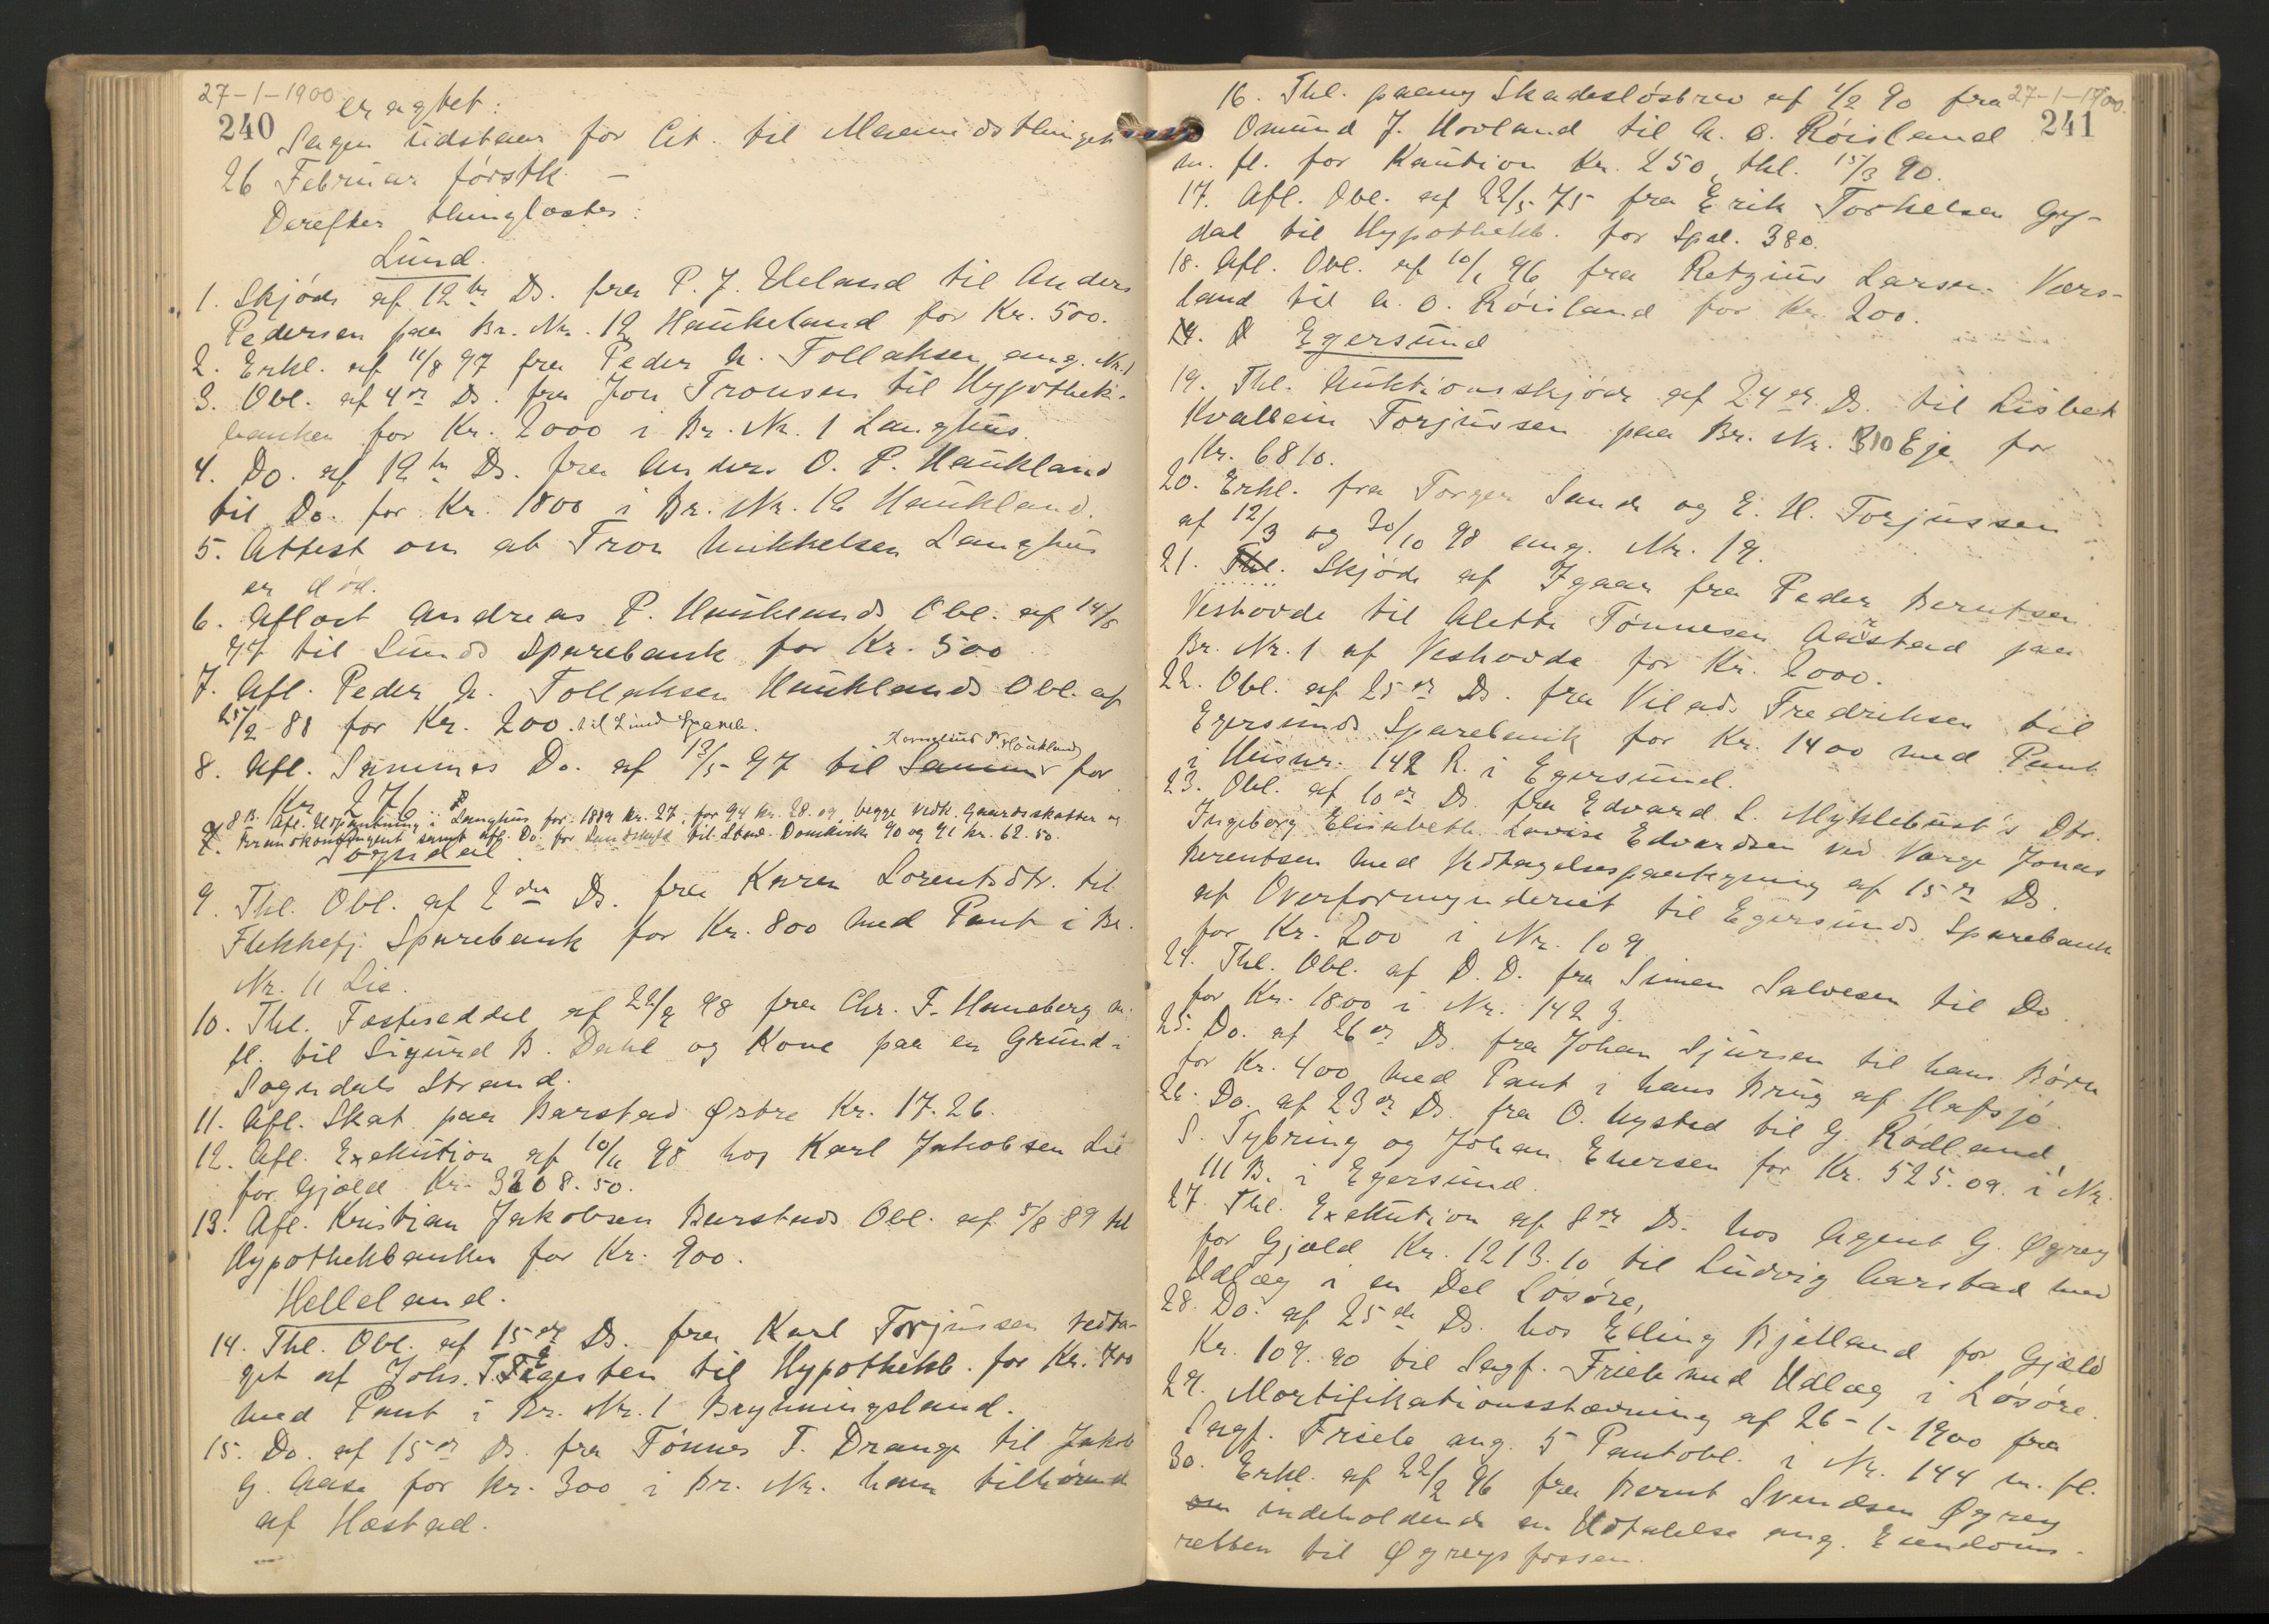 27-1-1900
240
eragtet:
Sagen udstaar for Cit. til Maanedsthinget
26 Februar førstk. –
Derefter thinglæstes:
Lund.
1. Skjøde af 12te Ds. fra P. J. Ueland til Anders
Pedersen paa Br. Nr. 12 Haukeland for Kr. 500.
2. Erkl. af 11/8 97 fra Peder A. Tollaksen ang. Nr. 1
3. Obl. af 4de Ds. fra Jon Tronsen til Hypothek-
banken for Kr. 2000 i Br. Nr. 1 Langhus.
4. Do. af 12te Ds. fra Anders O. P. Haukland
til Do. for Kr. 1800 i Br. Nr. 12 Haukland.
5. Attest om at Tron Mikkelsen Langhus
er død.
6. Aflæst Andreas P. Hauklands Obl. af 14/8
97 til Lunds Sparebank for Kr. 500
7. Afl. Peder A. Tollaksen Hauklands Obl. af
25/2 88 for Kr. 200. til Lund Spareb.
Kornelius P. Hauklands
8. Afl. Sammes Do. af 13/5 97 til Samme for
Kr. 276
8 B. Afl. Udpantning i Langhus for 1889 Kr. 27, for 94 Kr. 28.09, begge vedk. Gaardsskatter og
Brandkontingent samt afl. Do. for Landskyld til Stav. Domkirke 90 og 91 Kr. 62.50.
Sogndal
9. Thl. Obl. af 2den Ds. fra Karen Lorentsdtr. til
Flekkefj. Sparebank for Kr. 800 med Pant i Br.
Nr. 11 Lie.
10. Thl. Festeseddel af 22/9 98 fra Chr. F. Haneberg m.
fl. til Sigurd B. Dahl og Kone paa en Grund i
Sogndals Strand.
11. Afl. Skat paa Barstad Østre Kr. 17.26.
12. Afl. Exekution af 10/11 98 hos Karl Jakobsen Lie
for Gjæld Kr. 3208.50.
13. Afl. Kristian Jakobsen Barstads Obl. af 5/8 89 til
Hypothekbanken for Kr. 900.
Helleland.
14. Thl. Obl. af 15de Ds. fra Karl Torjussen vedta-
get af Johs. T. Egesten til Hypothekb. for Kr. 700
med Pant i Br. Nr. 1 Brynningsland.
15. Do. af 15de Ds. fra Tønnes T. Drange til Jakob
G. Aase for Kr. 300 i Br. Nr. ham tilhørende
af Hæstad.
27-1-1900.
241
16. Thl. paany Skadesløsbrev af 1/2 90 fra
Omund J. Hovland til A. O. Røisland
m. fl. for Kaution Kr. 250, thl. 15/3 90.
17. Afl. Obl. af 22/5 75 fra Erik Torkelsen Gy-
dal til Hypothekb. for Spd. 380.
18. Afl. Obl. af 10/1 96 fra Retzius Larsen Vers-
land til A. O. Røisland for Kr. 200.
19. O Egersund
19. Thl. Auktionsskjøde af 24de Ds. til Lisbeth
Kvallein Torjussen paa Br. Nr. 310 Eje for
Kr. 6810.
20. Erkl. fra Torger Sande og E. H. Torjussen
af 12/3 og 30/10 98 ang. Nr. 19.
21. Thl. Skjøde af Igaar fra Peder Berntsen
Veshovde til Alette Tønnesen Aarstad paa
Br. Nr. 1 af Veshovde for Kr. 2000.
22. Obl. af 25de Ds. fra Vilads Fredriksen til
Egersunds Sparebank for Kr. 1400 med Pant
i Husnr. 142 R. i Egersund.
23. Obl. af 10de Ds. fra Edvard L. Myklebust's Dtr.
Ingeborg Elisabeth Lovise Edvardsen ved Værge Jonas
Berentsen med Vedtagelsespaategning af 15de Ds.
af Overformynderiet til Egersunds Sparebank
for Kr. 200 i Nr. 109
24. Thl. Obl. af D. D. fra Simen Salvesen til Do.
for Kr. 1800 i Nr. 142 z.
25. Do. af 26de Ds. fra Johan Sjursen til hans Børn
for Kr. 400 med Pant i hans Brug af Hafsjø
26. Do. af 23de Ds. fra O. Nysted til G. Rødland
S. Tybring og Johan Enersen for Kr. 525.09. i Nr.
111 B. i Egersund.
27. Thl. Exekution af 8de Ds. hos Agent G. Øgrey
for Gjæld Kr. 1213.10 til Ludvig Aarstad med
Udlæg i en Del Løsøre,
28. Do. af 25de Ds. hos Elling Bjelland for Gjæld
Kr. 109.90 til Sagf. Friele med Udlæg i Løsøre.
29. Mortifikationsstævning af 26-1-1900 fra
Sagf. Friele ang. 5 Pantobl. i Nr. 144 m. fl.
30. Erkl. af 22/2 96 fra Bernt Svendsen Øgrey
om indeholdende en Udtalelse ang. Eiendoms-
retten til Øgreysfossen.